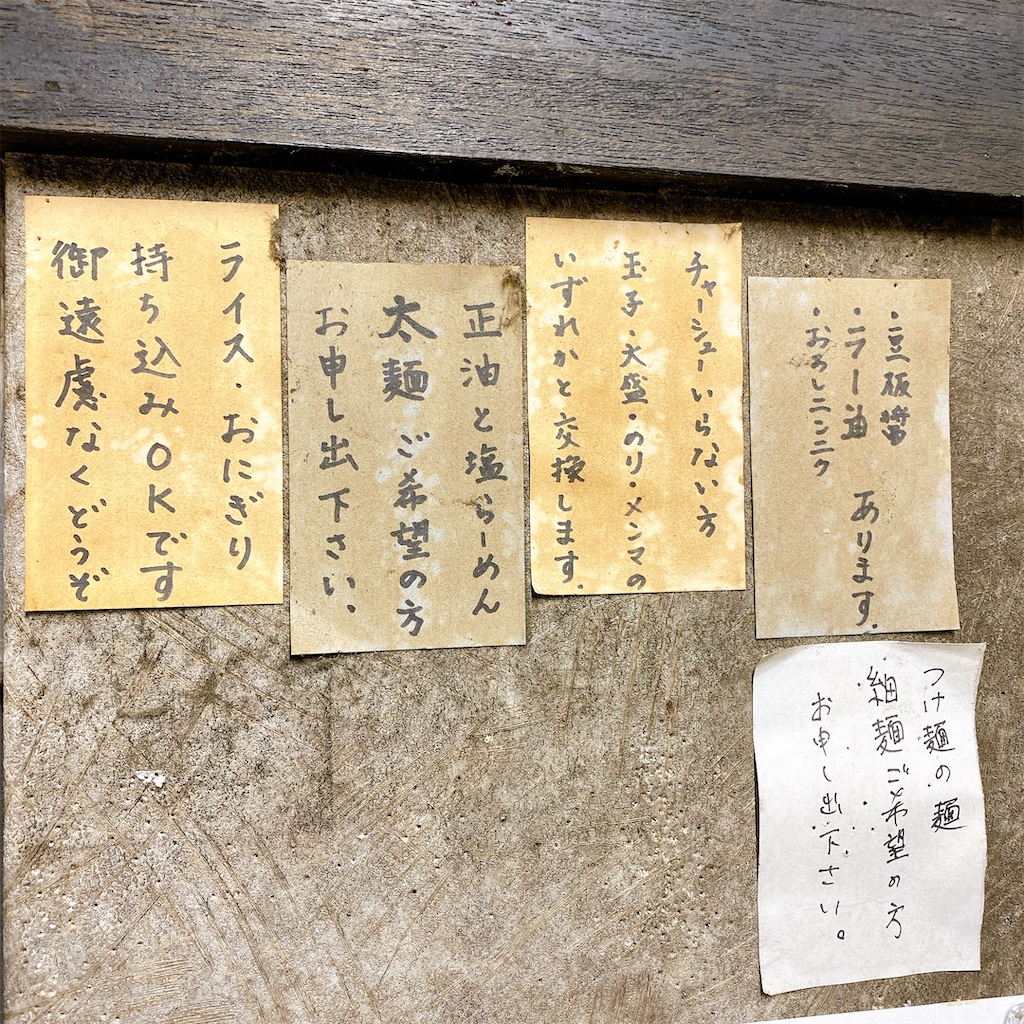 ・豆板醤
・ラー油
・おろしニンニク
あります.
チャーシューいらない方
玉子・大盛・のり・メンマの
いずれかと交換します.
正油と塩らーめん
太麺ご希望の方
お申し出下さい。
ライス・おにぎり
持ち込みOKです
御遠慮なくどうぞ
つけ麺の麺
細麺ご希望の方
お申し出下さい。